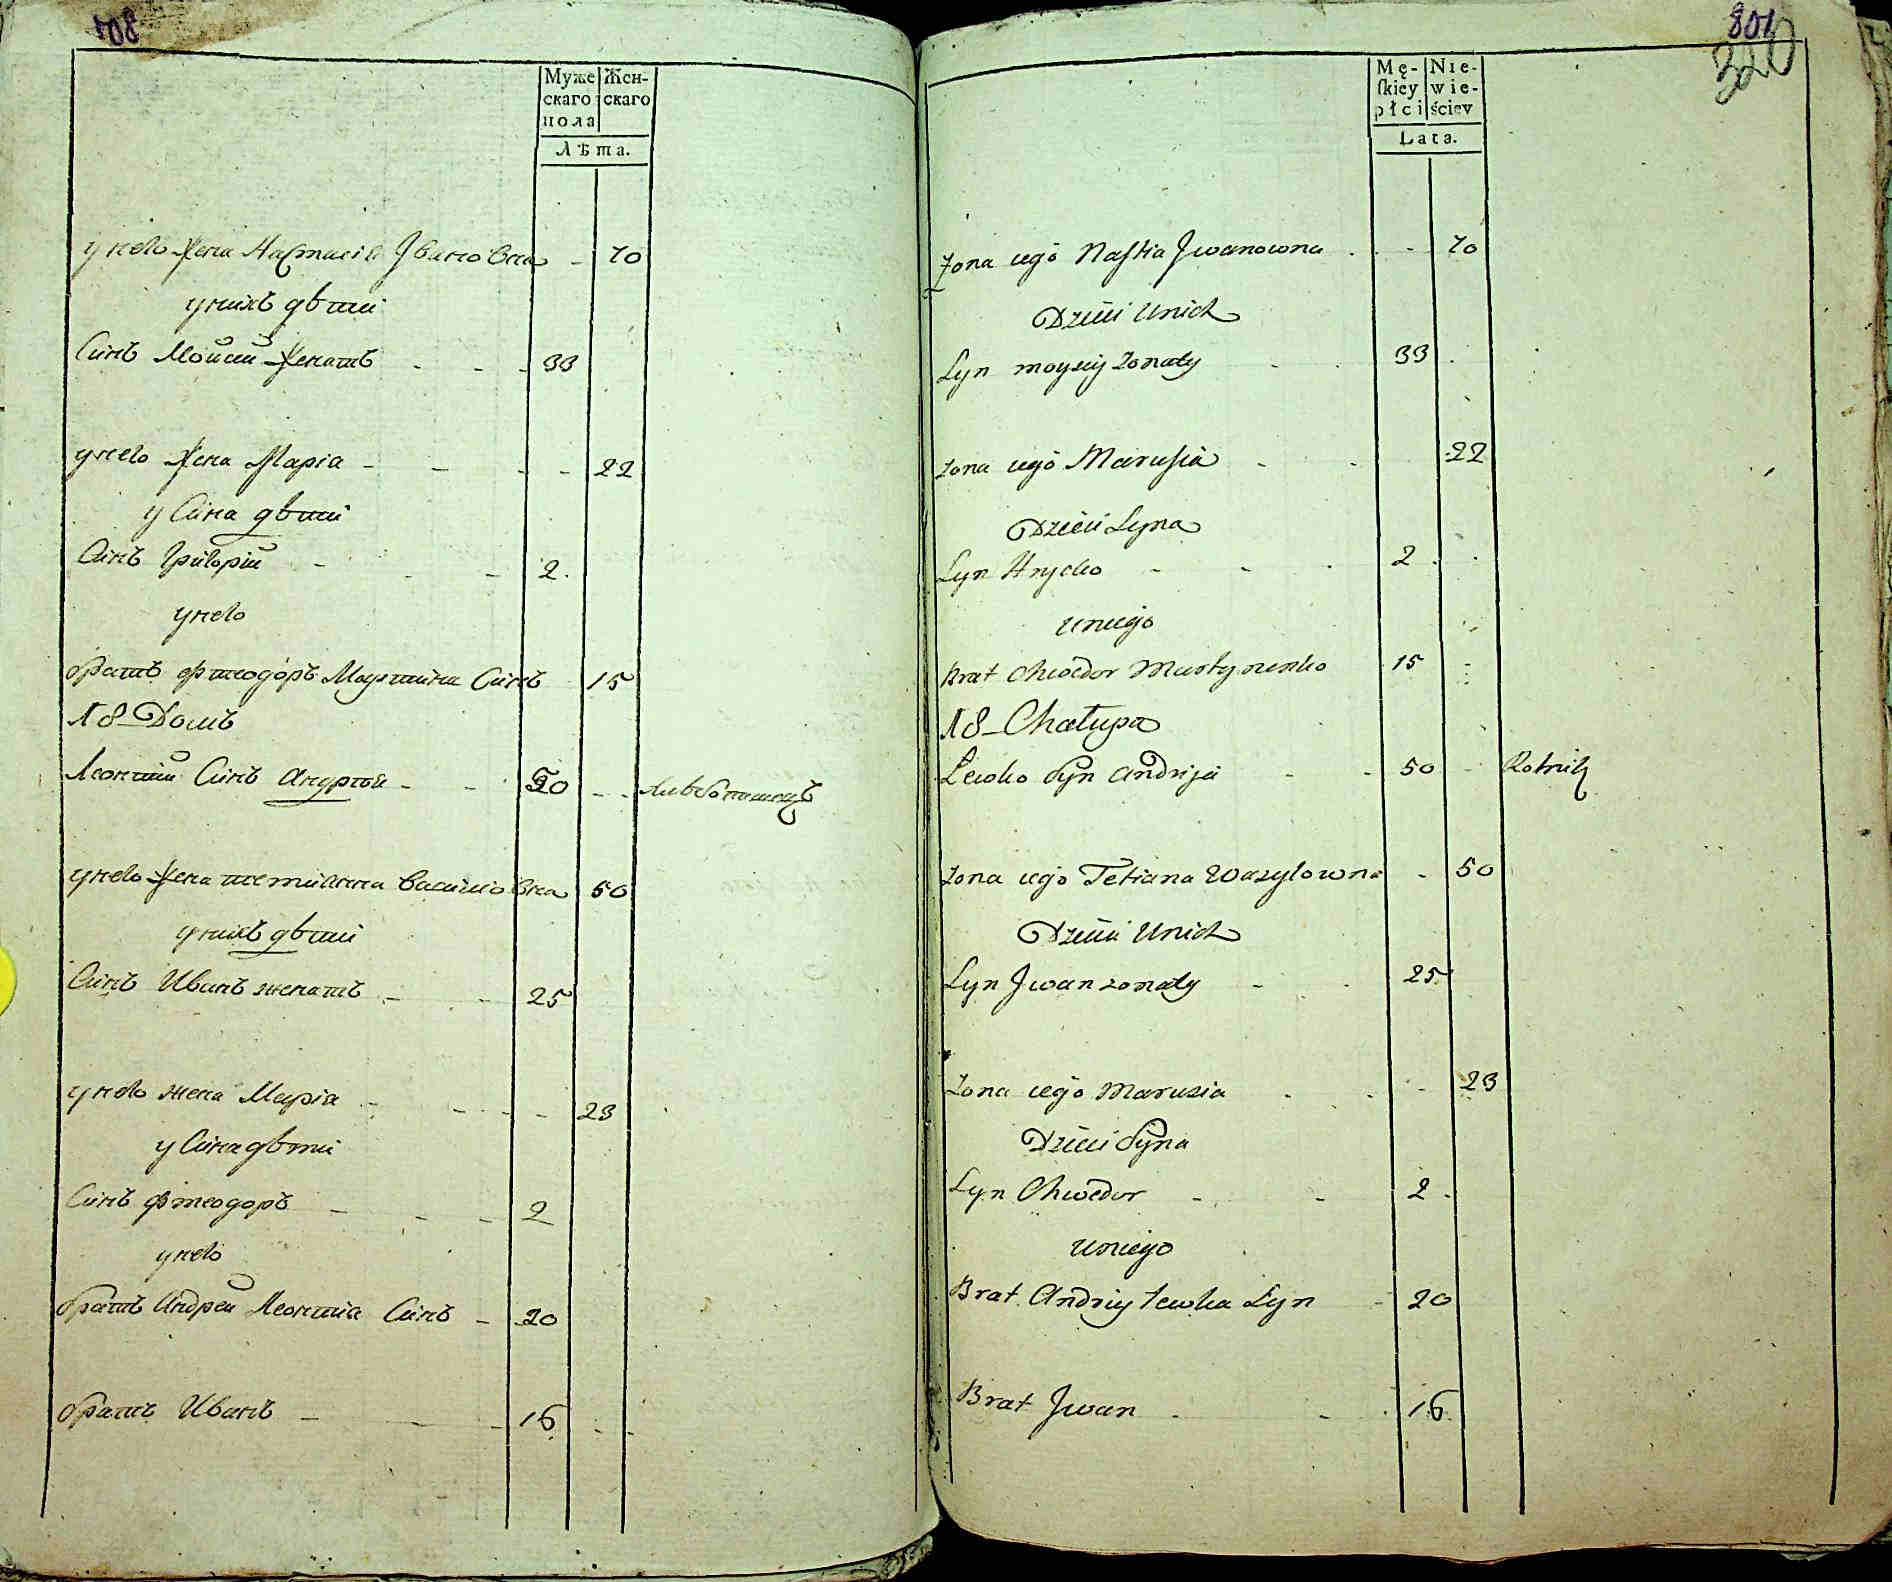 801
Муже Жен-
скаго скаго
пола
Лѣта.
у него жена Настасія Івановна 70
у нихъ дѣти
Синъ Мойсій женатъ 33
у него жена Марія 22
у Сина дѣти
Синъ Григорій 2
у него
братъ Фтеодоръ Мартина Синъ 15
№ 8 Домъ
Леонтий Синъ Андрѣя 50 Хлѣбопашецъ
у него жена тетианна Василовна 50
у нихъ дѣти
Синъ Иванъ женатъ 25
у него жена Марія 23
у Сина дѣти
Синъ Фтеодоръ 2
у него
братъ Андрей Леонтія Синъ 20
братъ Иванъ 16
801
320
Mę- Nie-
skiey wie-
płci ściey
Lata.
Żona iego Nastia Iwanowna 70
Dzieci Unich
Syn moysiy Żonaty 33
Żona iego Marusia 22
Dzieci Syna
Syn Hrycko 2
Uniego
Brat Chwedor Martynenko 15
№ 8 Chałupa
Lewko Syn Andrija 50 Rolnik
Żona iego Tetiana Wasylowna 50
Dzieci Unich
Syn Iwan zonaty 25
Żona iego Marusia 23
Dzieci Syna
Syn Chwedor 2
Uniego
Brat Andriy Lewka Syn 20
Brat Iwan 16